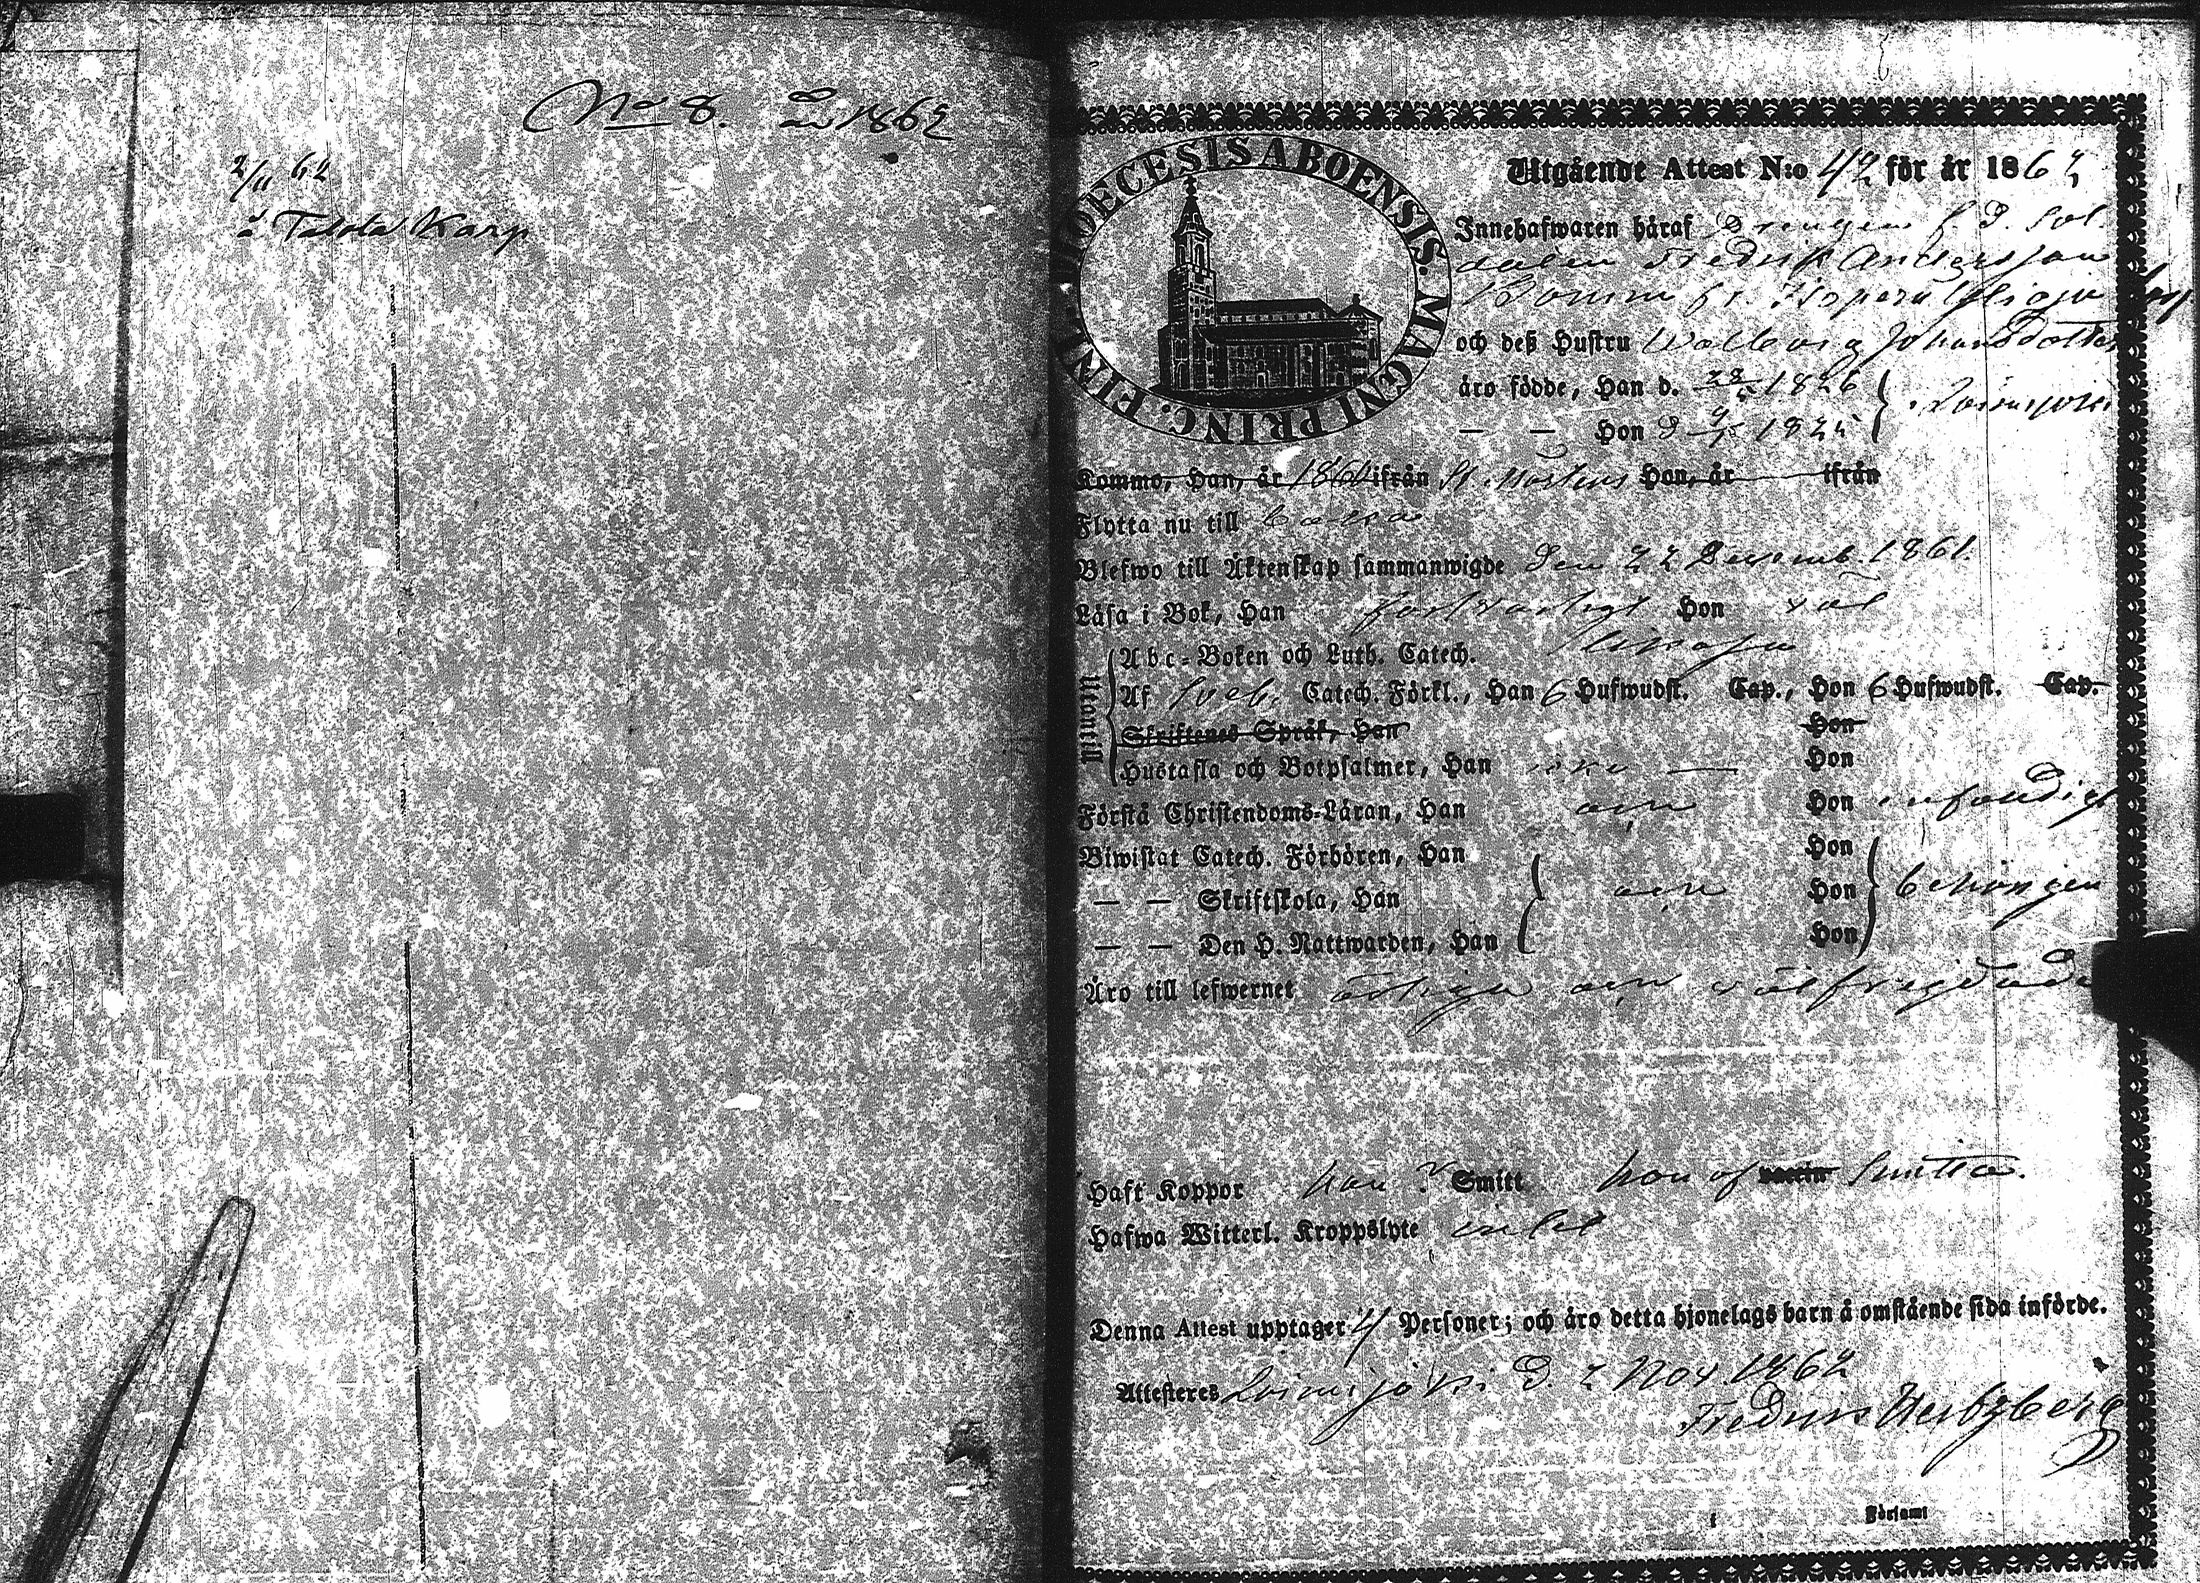 No 8. år 1862
2/11 62
å Talola Karp
FINL. DIOECESIS ABOENSIS. MAGNI PRINC.
Utgående Attest N:o 42 för år 1862
Innehafwaren häraf Drengen f. d. Sol
daten Fredrik Andersson
Bomm fr.
och deß Hustru Walborg Johansdotter
äro födde, Han d. 28/5 1826
— — Hon d 1825
Kommo, Han, år 1861 ifrån St. Mårtens Hon, år ifrån
Flytta nu till
Blefwo till Äktenskap sammanwigde den 22 Decemb. 1861
Läsa i Bok, Han försvarligt Hon väl
Utontill
Abc-Boken och Luth. Catech.
Af Sveb. Catech. Förkl., Han 6 Hufwudst. Cap., Hon 6 Hufwudst. Cap.
Skriftenes Språk, Han Hon
Hustafla och Botpsalmer, Han icke — Hon
Förstå Christendoms-Läran, Han och Hon enfaldigt
Biwistat Catech. Förhören, Han Hon
— — Skriftskola, Han och Hon behörigen
— — Den H. Nattwarden, Han Hon
Äro till lefwernet ärliga och välfrejdade
Haft Koppor han v. Smitt hon af Smitta.
Hafwa Witterl. Kroppslyte intet
Denna Attest upptager 4 Personer; och äro detta hjonelags barn å omstående sida införde.
Attesteres Loimijoki d. 2 Nov 1862
Fredrik Hertzberg
Förjamt